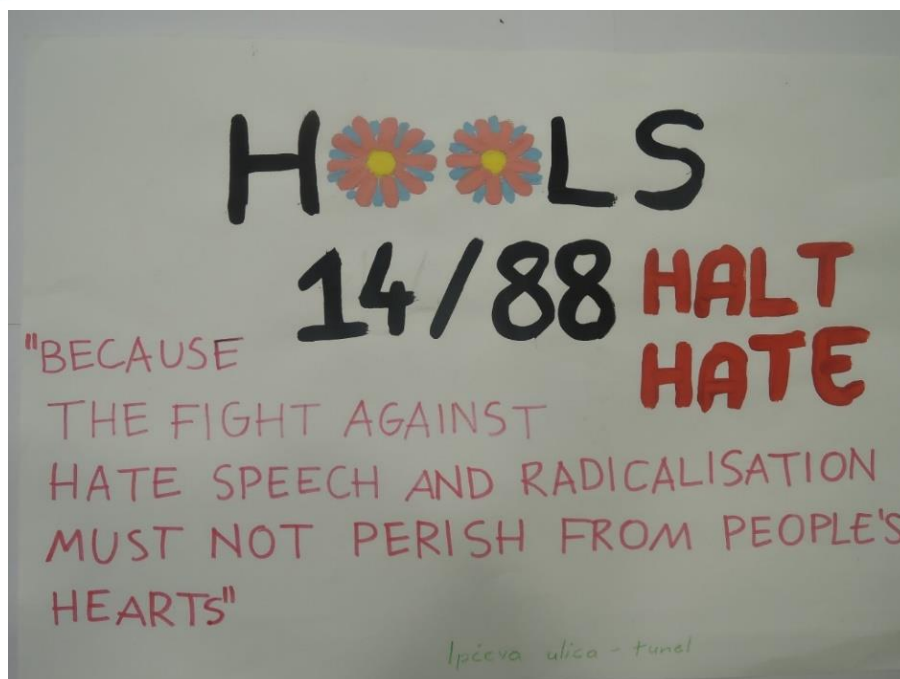 HOOLS
14/88 HALT
HATE
"BECAUSE
THE FIGHT AGAINST
HATE SPEECH AND RADICALISATION
MUST NOT PERISH FROM PEOPLE'S
HEARTS"
ulica - tunel